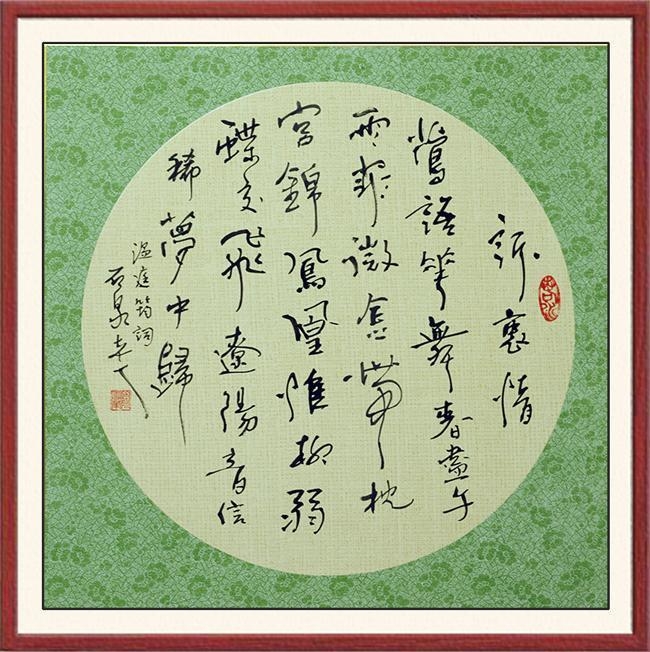 訴衷情
鶯語華舞春晝午
雨霏微金帶枕
宮錦鳳凰帷柳弱
蝶交飛遼陽音信
稀夢中歸
温庭筠詞
石泉